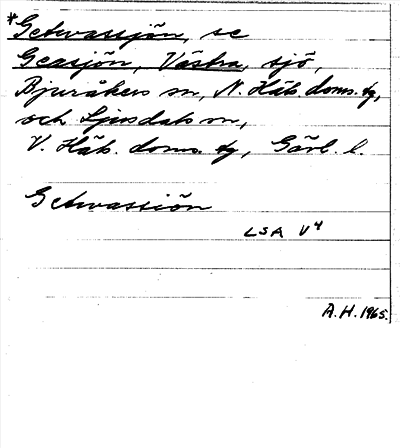 *Getwassjön, se
Geasjön, Västra, sjö,
Bjuråkers sn, N. Häls. doms. tg,
och Ljusdals sn,
V. Häls. doms. tg, Gävl. l.
Getwassiön
LSA V4
A.H. 1965.